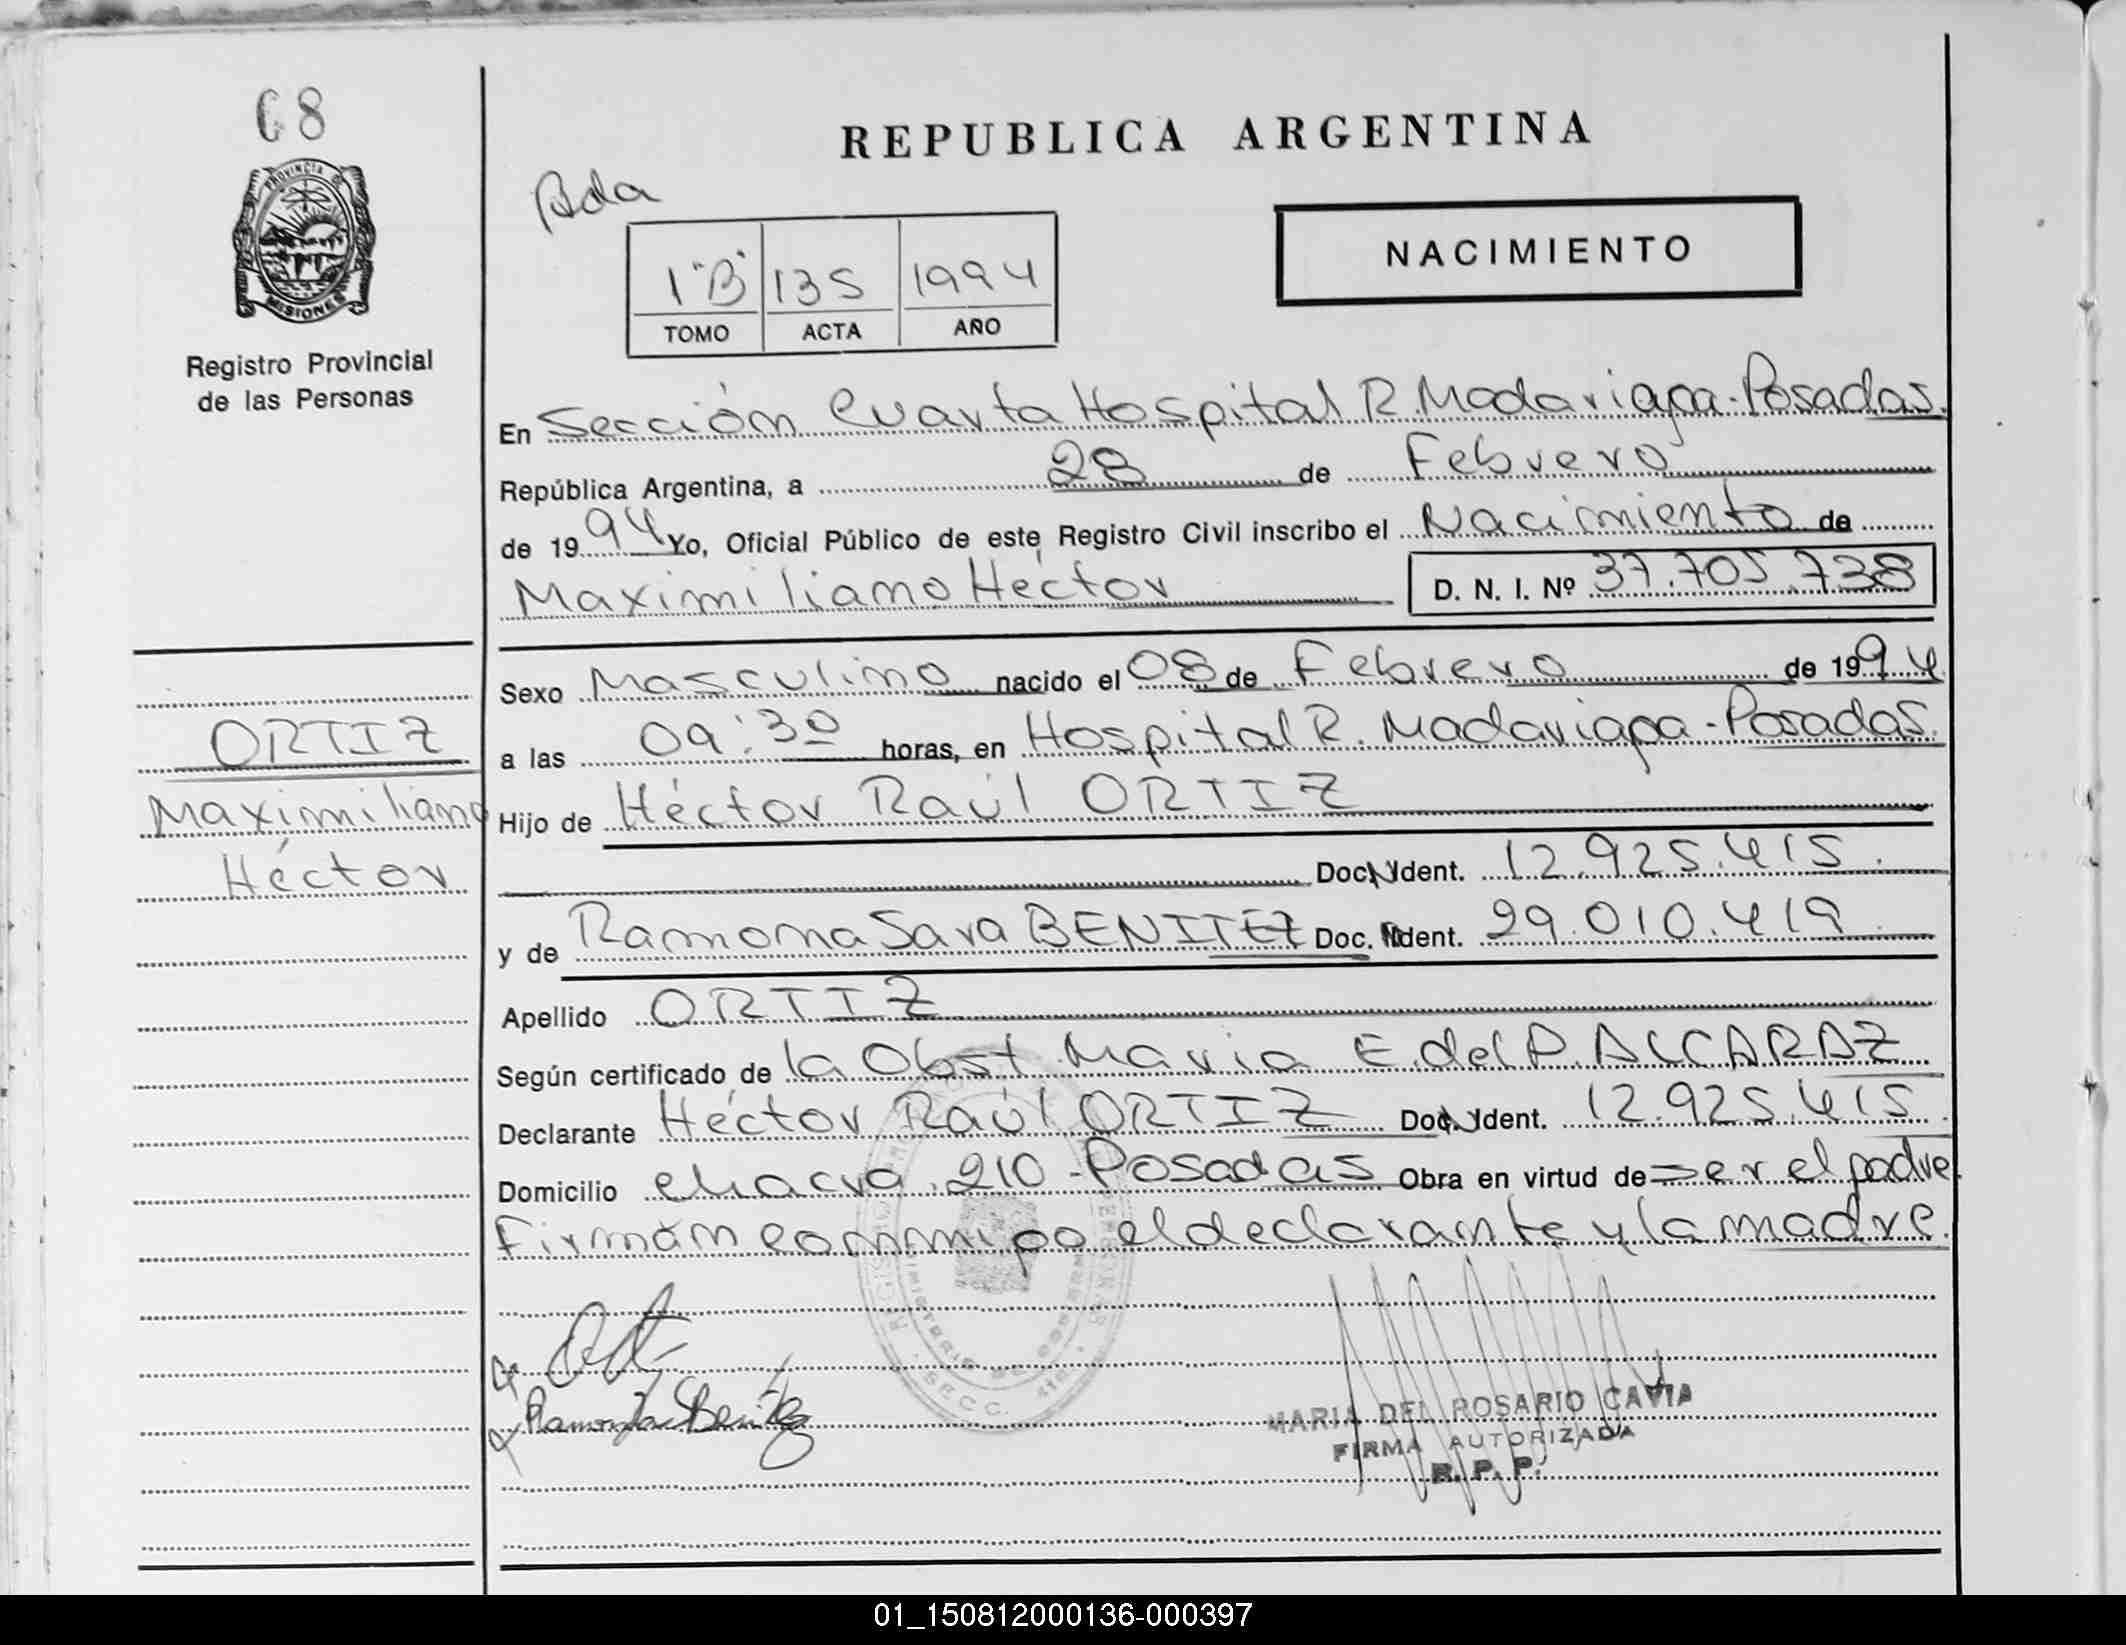 68
PROVINCIA DE
MISIONES
Registro Provincial
de las Personas
ORTIZ
Maximiliano
Héctor
REPUBLICA ARGENTINA
NACIMIENTO
1"B" 135 1994
TOMO ACTA AÑO
En Sección Cuarta Hospital R. Madariaga - Posadas.
República Argentina, a 28 de Febrero
de 1994 Yo, Oficial Público de este Registro Civil inscribo el Nacimiento de
Maximiliano Héctor D. N. I. Nº 37.705.738
Sexo Masculino nacido el 08 de Febrero de 1994
a las 09:30 horas, en Hospital R. Madariaga - Posadas.
Hijo de Héctor Raúl ORTIZ
Doc. Ident. 12.925.415.
y de Ramona Sara BENITEZ Doc. Ident. 29.010.419
Apellido ORTIZ
Según certificado de la Obst María E. del P. ALCARAZ
Declarante Héctor Raúl ORTIZ Doc. Ident. 12.925.415.
Domicilio chacra 210 - Posadas Obra en virtud de ser el padre.
Firmán conmigo el declarante y la madre.
Ramona Benitez
MARIA DEL ROSARIO CAVIA
FIRMA AUTORIZADA
R. P. P.
01_150812000136-000397